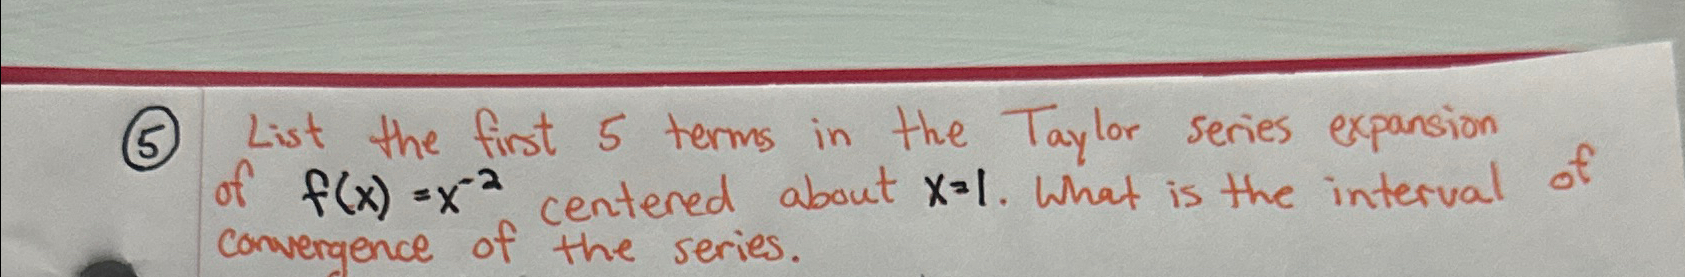 ⑤ List the first 5 terms in the Taylor series expansion
of f(x) = x⁻² centered about x=1. What is the interval of
convergence of the series.